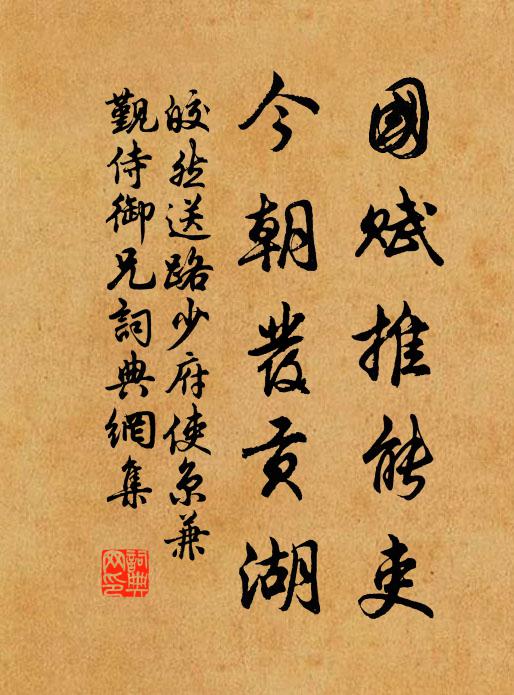 國賦推能吏
今朝發貢湖
皎然送路少府使京兼
觐侍御兄詞典網集
詞典網印